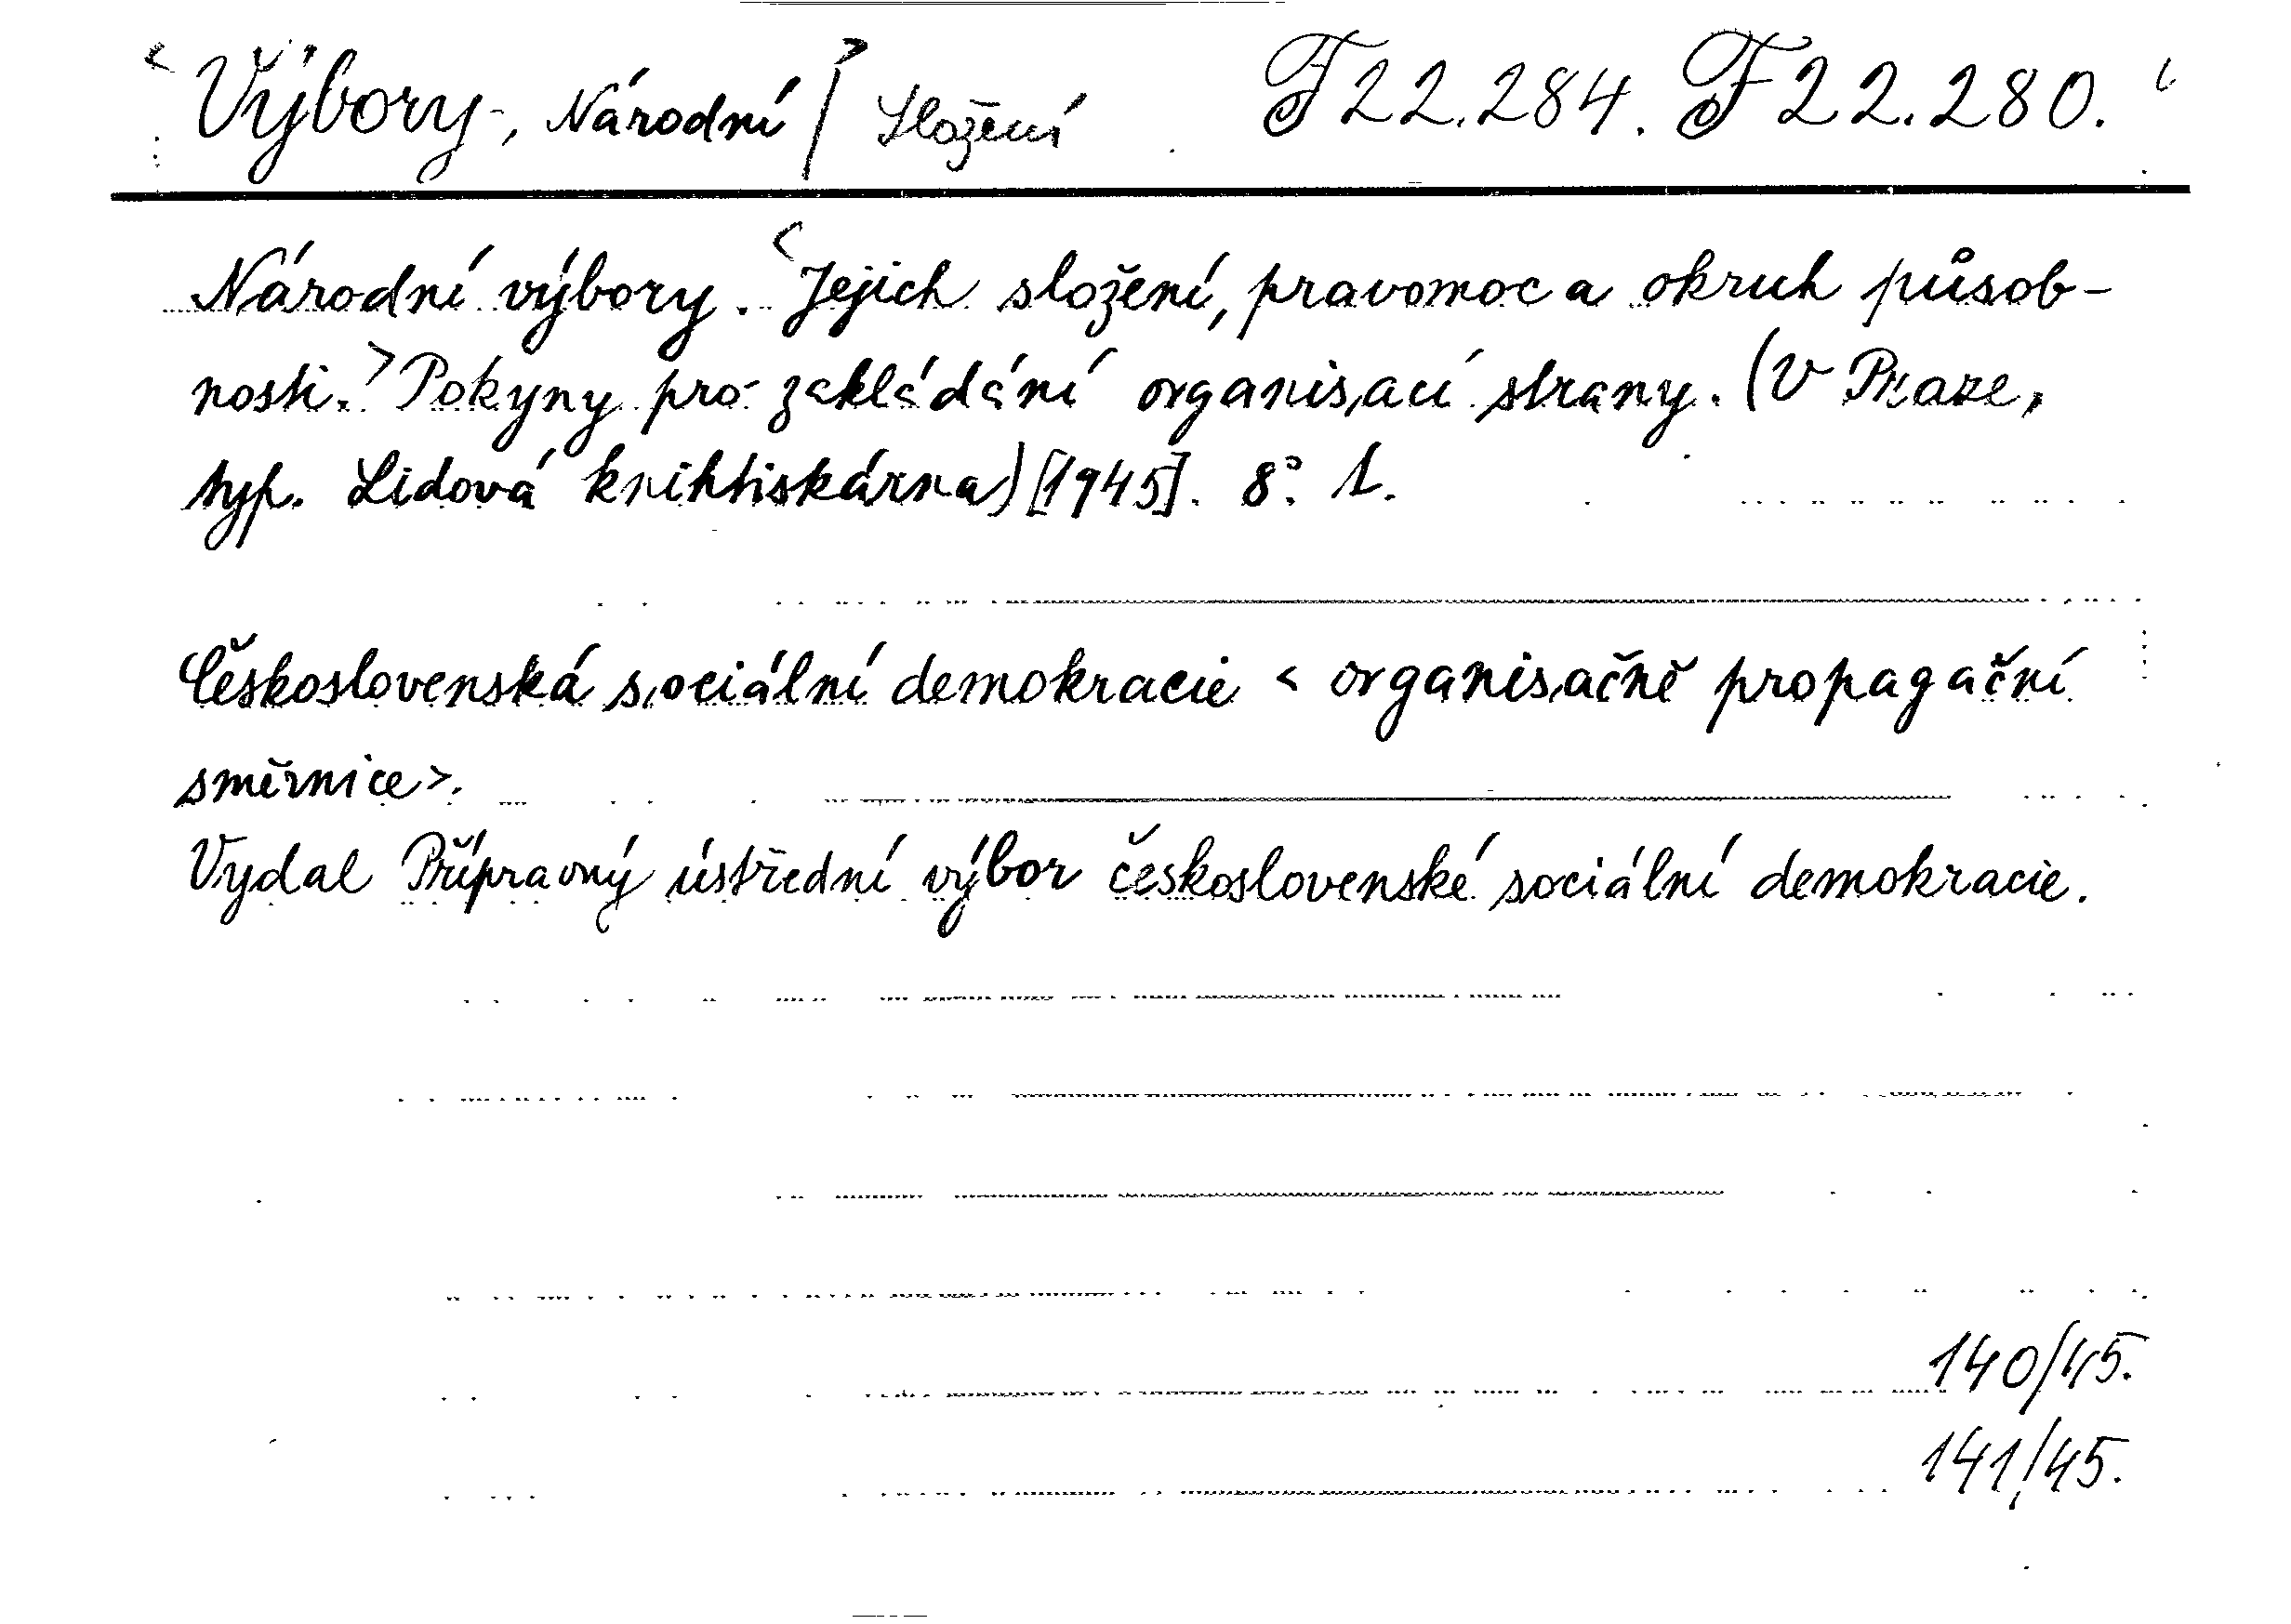 < Výbory-, Národní > / Složení F 22.284. F 22.280.
Národní výbory. < Jejich složení, pravomoc a okruh působ-
nosti. > Pokyny pro zakládání organisací strany. (V Praze,
typ. Lidová knihtiskárna) [1945]. 8°. L.
Československá sociální demokracie < organisačně propagační
směrnice >.
Vydal Přípravný ústřední výbor československé sociální demokracie.
140/45.
141/45.